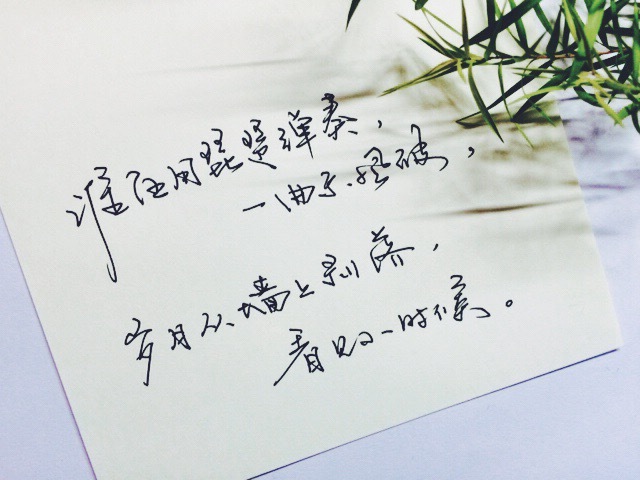 谁在用琵琶弹奏，
一曲东风破，
岁月从墙上剥落，
看见小时候。